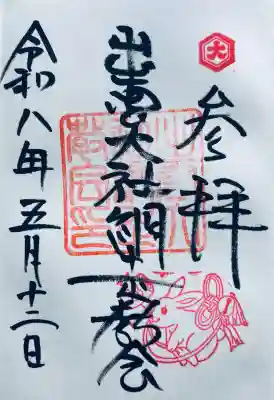 大
参拝
出雲大社教会
令和八年五月十二日